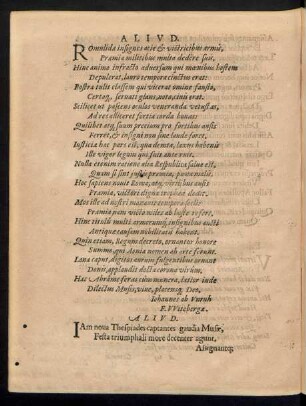 A L I V D.
Romulida insignes arte & victricibus armis,
Præmia militibus multa dedére suis,
Hic animo infracto adversum qui mœnibus hostem
Depulerat, lauro tempora cinctus erat:
Rostra tulit classem qui vicerat omine fausto,
Certaq, servati gloria
Scilicet ut posteros oculos veneranda vetustas,
Ad res alliceret fortia corda bonas:
Quilibet atq, suum precium pro fortibus ausis
Ferret, & insigni non sine laude foret.
Iustitiæ hæc pars est, qua demta, laxus habenis
Iste vigor legum qui fuit ante ruit.
Nulla etenim ratione viva Respublica salva est,
Quam si sint iustis præmia, pœna malis.
Hoc sapiens novit Roma, atq, virtibus ausis
Præmia, victori digna tropæa dedit.
Mos iste ad nostri manavit tempora secli:
Præmia nam victo miles ab hoste refert.
Hinc titulis multi armorum, insignibus aucti
Antiquæ tansam nobilitatis habent.
Quin etiam, Regum decreto, ornantur honore
Summo, qui Aonia nemen ab arce ferunt.
Lana caput, digitos aurum fulgentibus ornat
Donis, applaudit docta corona virûm.
Hæc Abrâme feras cùm munera, lætior inde
Dilectus Musis, vive, placensq, Deo.
Iohannes ab
F. Witebergæ.
A L I V D.
IAm nova Thespiades captantes gaudia Musæ,
Festa triumphali more decenter agunt.
Alugnantq;